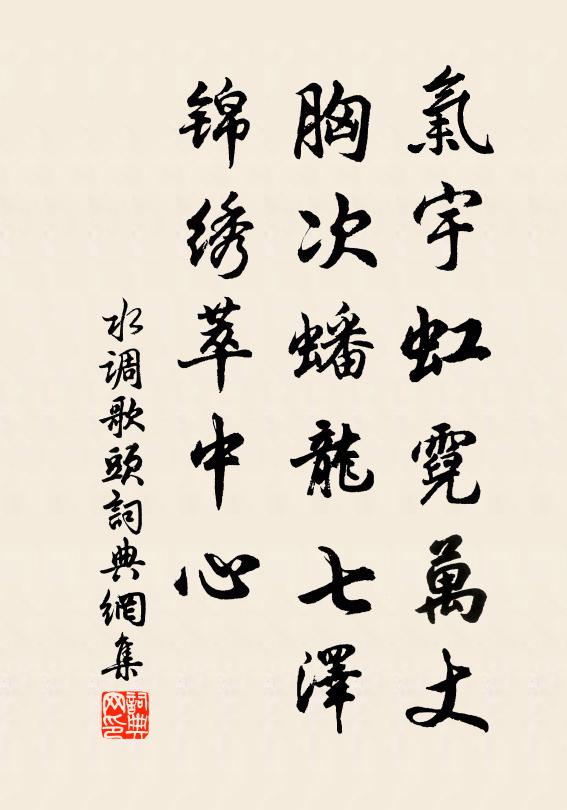 氣宇虹霓萬丈
胸次蟠龍七澤
锦绣萃中心
水调歌頭詞典網集
詞典网印